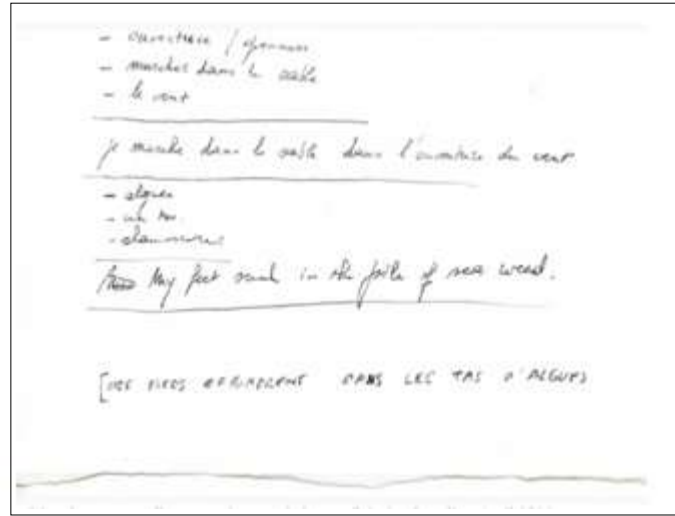 - ouverture /
- marcher dans le sable
- le vent
je marche dans le sable dans l'ouverture du vent
- algues
- un tas
-
My feet sank in the pile of sea weed.
[DES PIEDS DANS LES TAS D'ALGUES